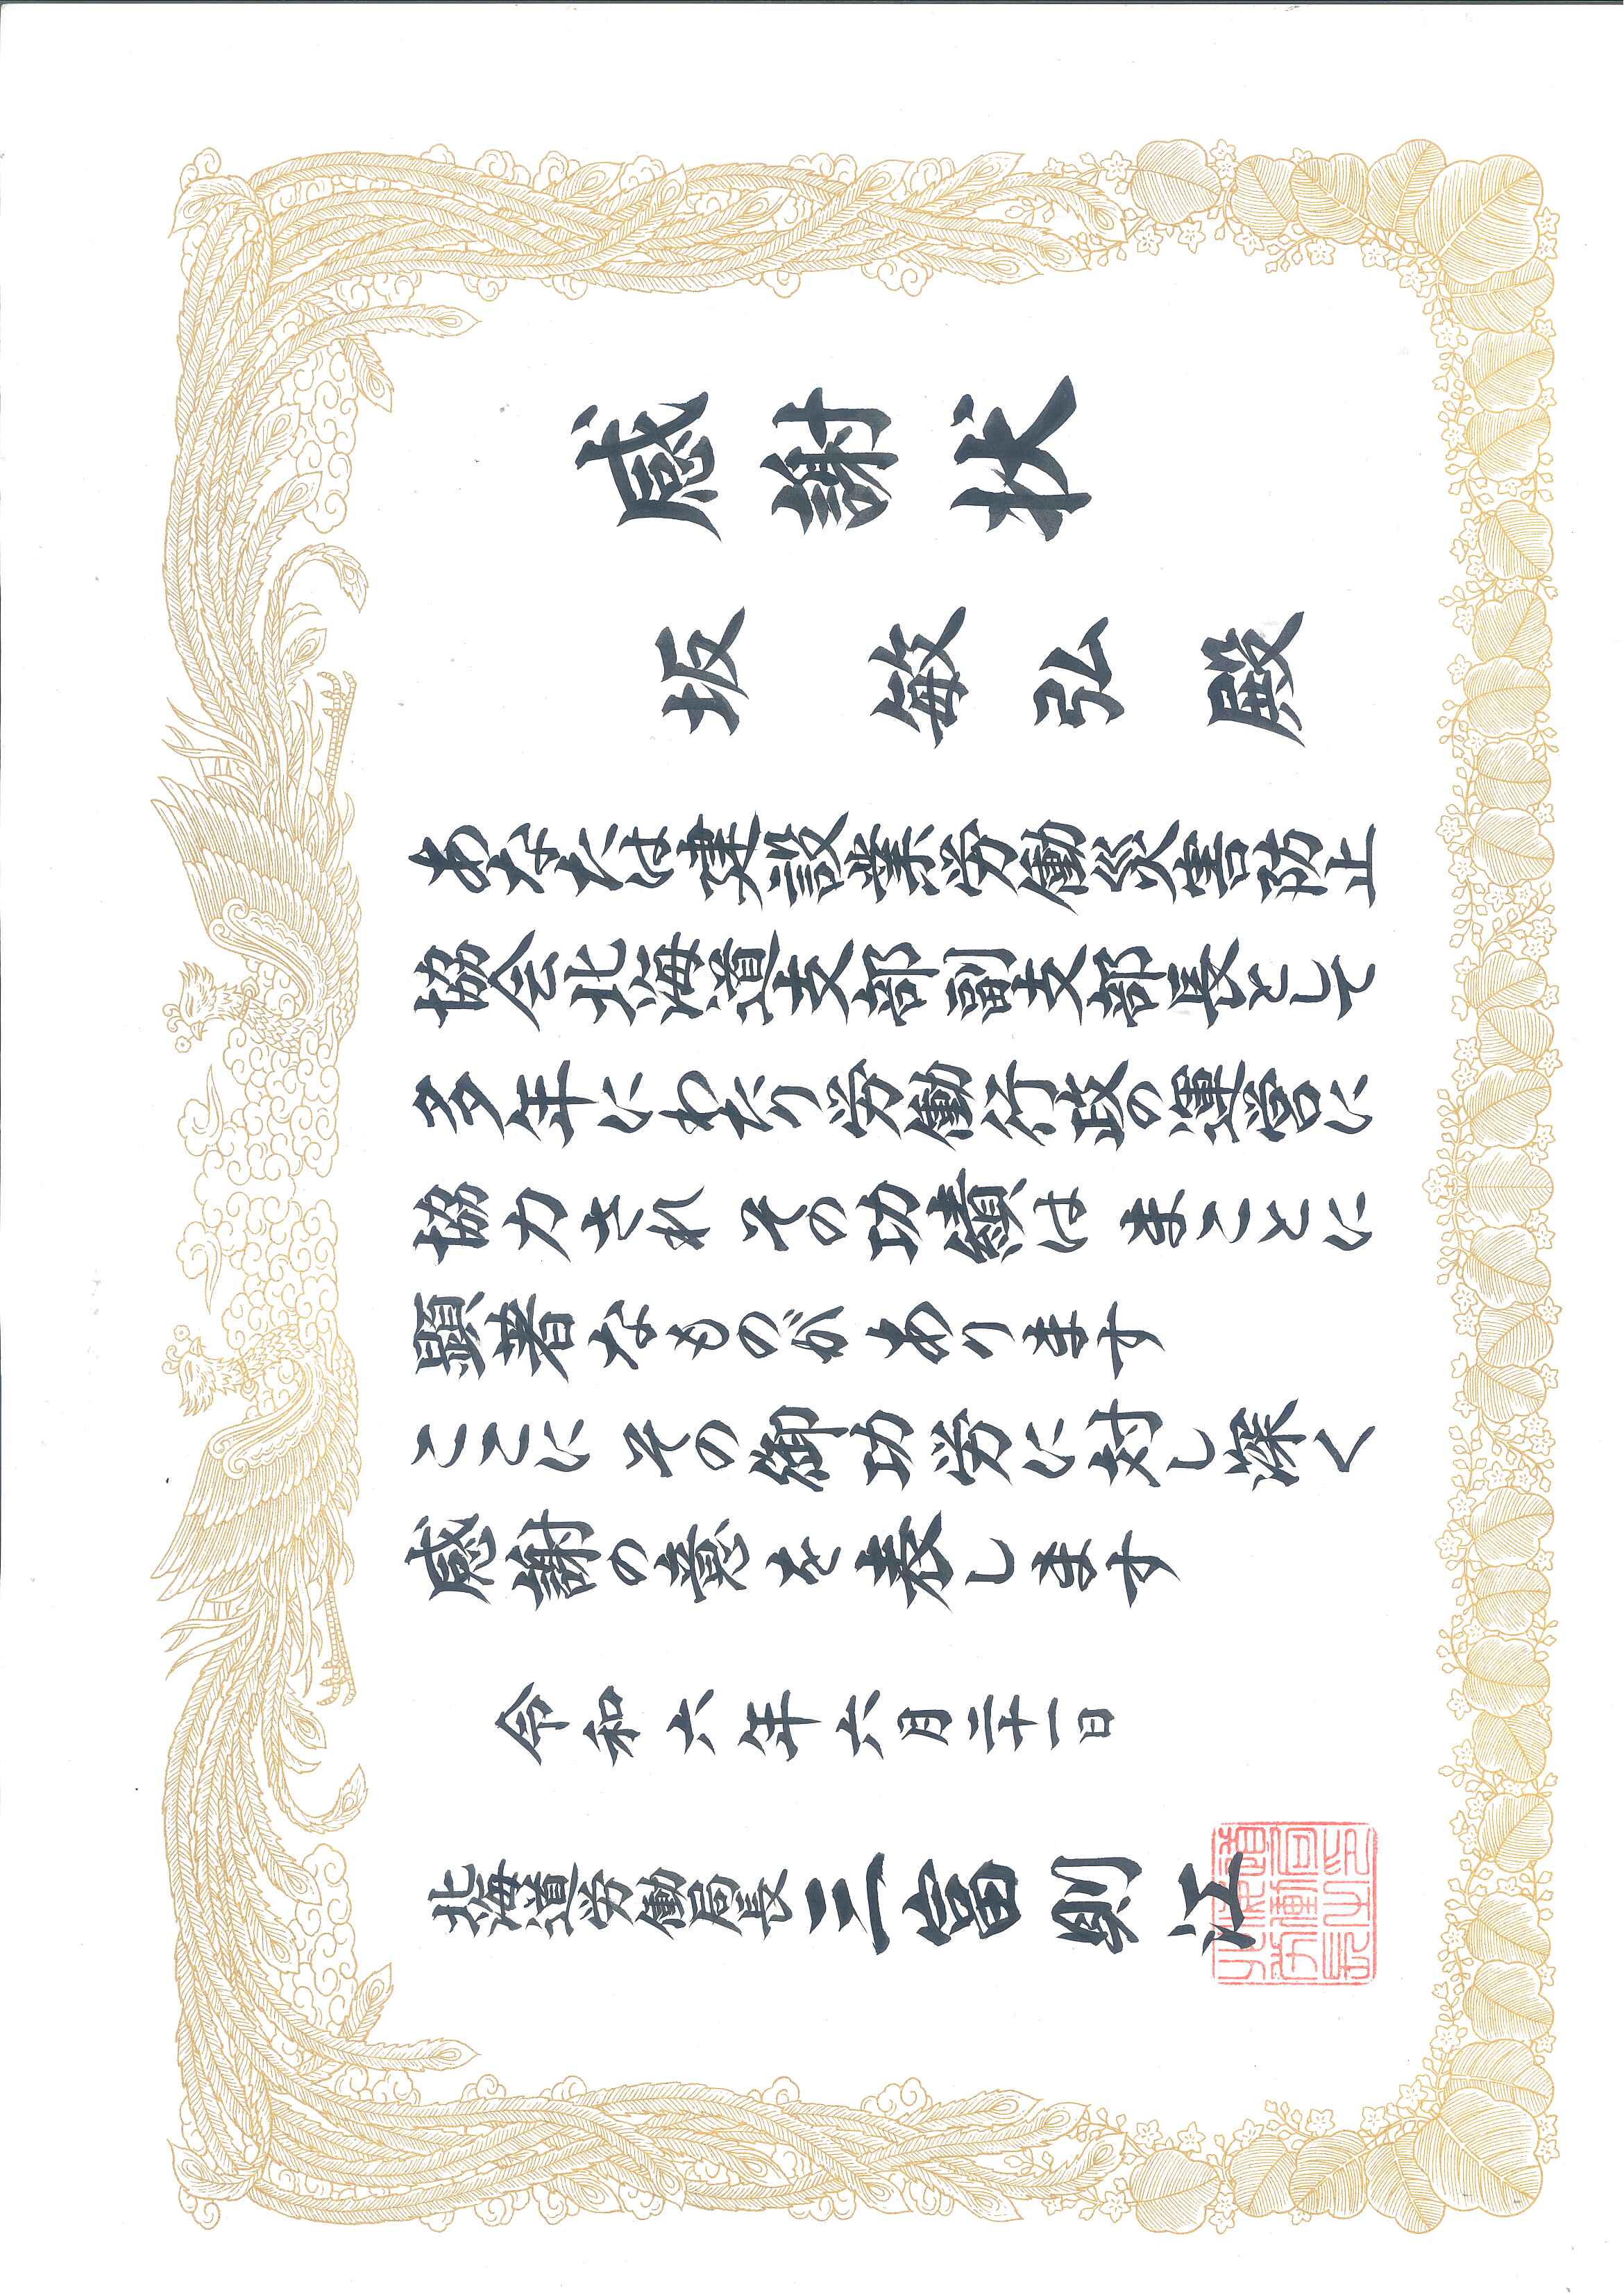 感謝状
坂 敏弘 殿
あなたは建設業労働災害防止
協会北海道支部副支部長として
多年にわたり労働行政の運営に
協力され その功績は まことに
顕著なものが あります
ここに その御功労に対し深く
感謝の意を表します
令和六年六月二十一日
北海道労働局長 三富則江